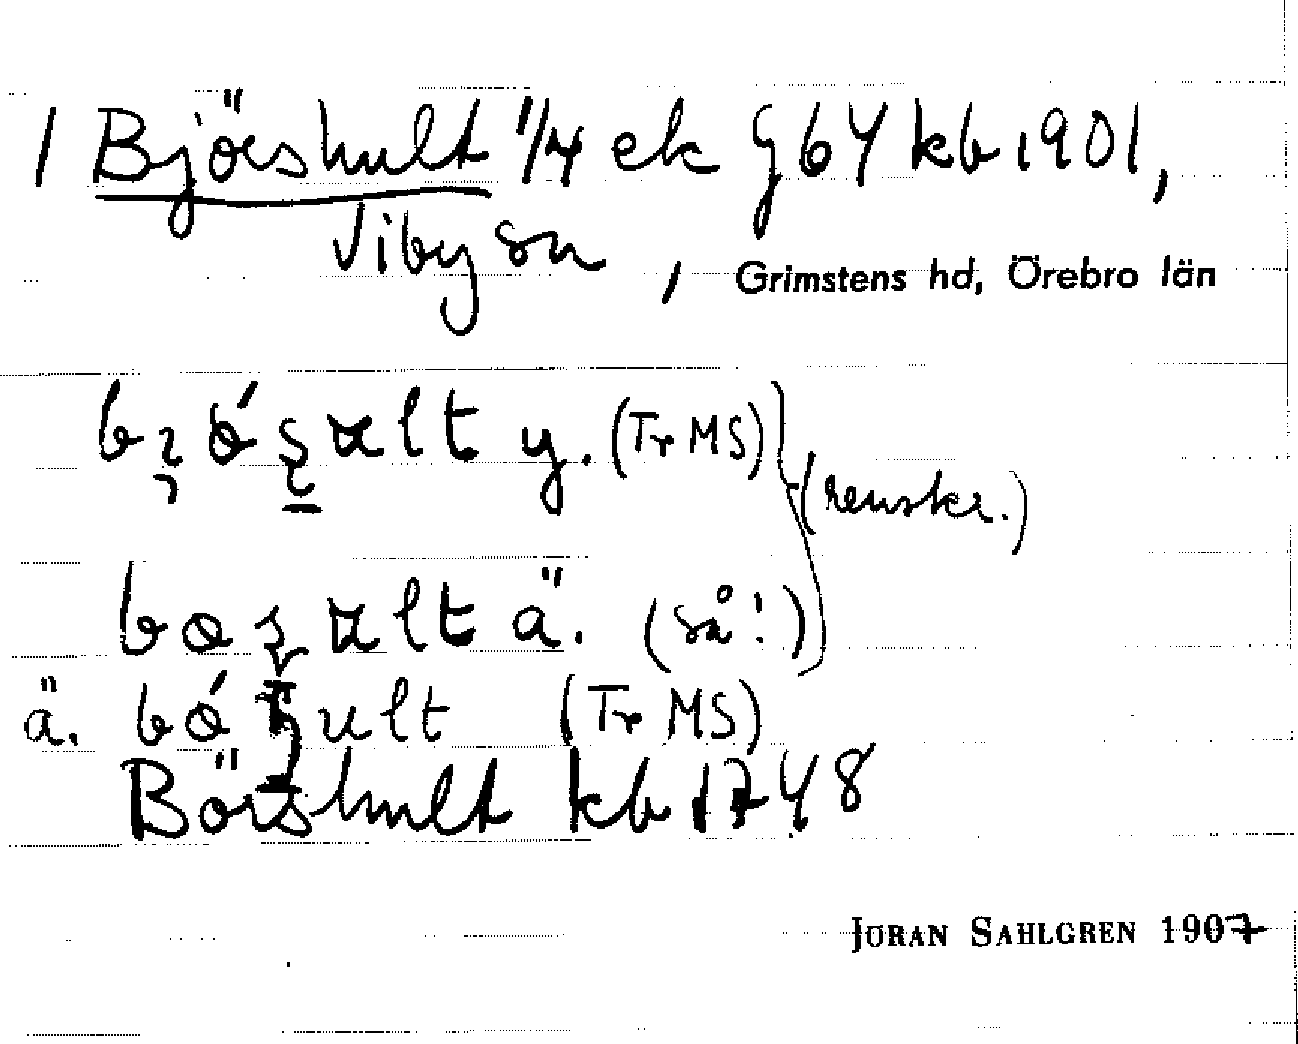 1 Björshult 1/4 ek G64 kb 1901,
Viby sn, Grimstens hd, Örebro län
y. (Tr MS)
(renskr.)
ä. (så!)
ä. (Tr MS)
Börshult kb 1748
JÖRAN SAHLGREN 1907